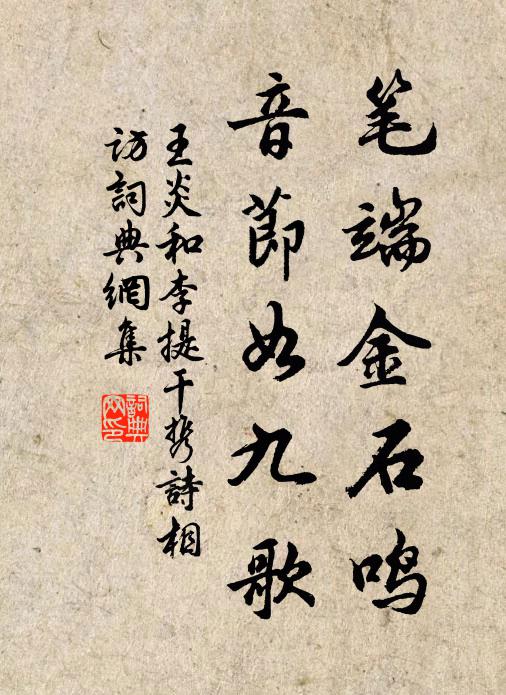 笔端金石鸣
音節如九歌
王炎和李提干携詩相
訪詞典網集
詞典
网印